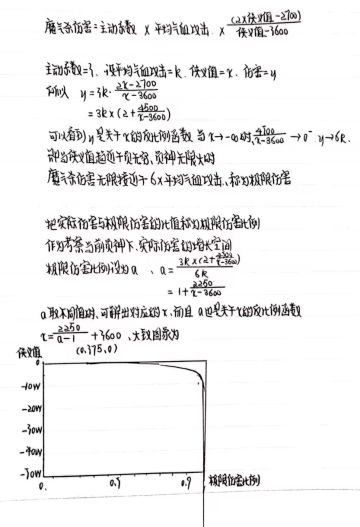 魔气杀伤害=主动系数 × 平均气血攻击 × (2×侠义值-2700)/侠义值-3600
主动系数=3, 设平均气血攻击=k, 侠义值=x, 伤害=y
所以 y=3k·2x-2700/x-3600
=3k×(2+4500/x-3600)
可以看到y是关于x的反比例函数 当x→-∞时,4500/x-3600→0⁻ y→6k.
即当侠义值趋近于负无穷,负神无限大时
魔气杀伤害无限接近于6×平均气血攻击,称为极限伤害
把实际伤害与极限伤害的比值称为极限伤害比例
作为考察当前负神下,实际伤害的增长空间
极限伤害比例设为a, a=3k×(2+4500/x-3600)/6k
=1+2250/x-3600
a取不同值时,可解出对应的x,而且a也是关于x的反比例函数
x=2250/a-1+3600,大致图象为
侠义值
(0.375,0)
0
-10W
-20W
-30W
-40W
-50W
0.
0.5
0.9
极限伤害比例